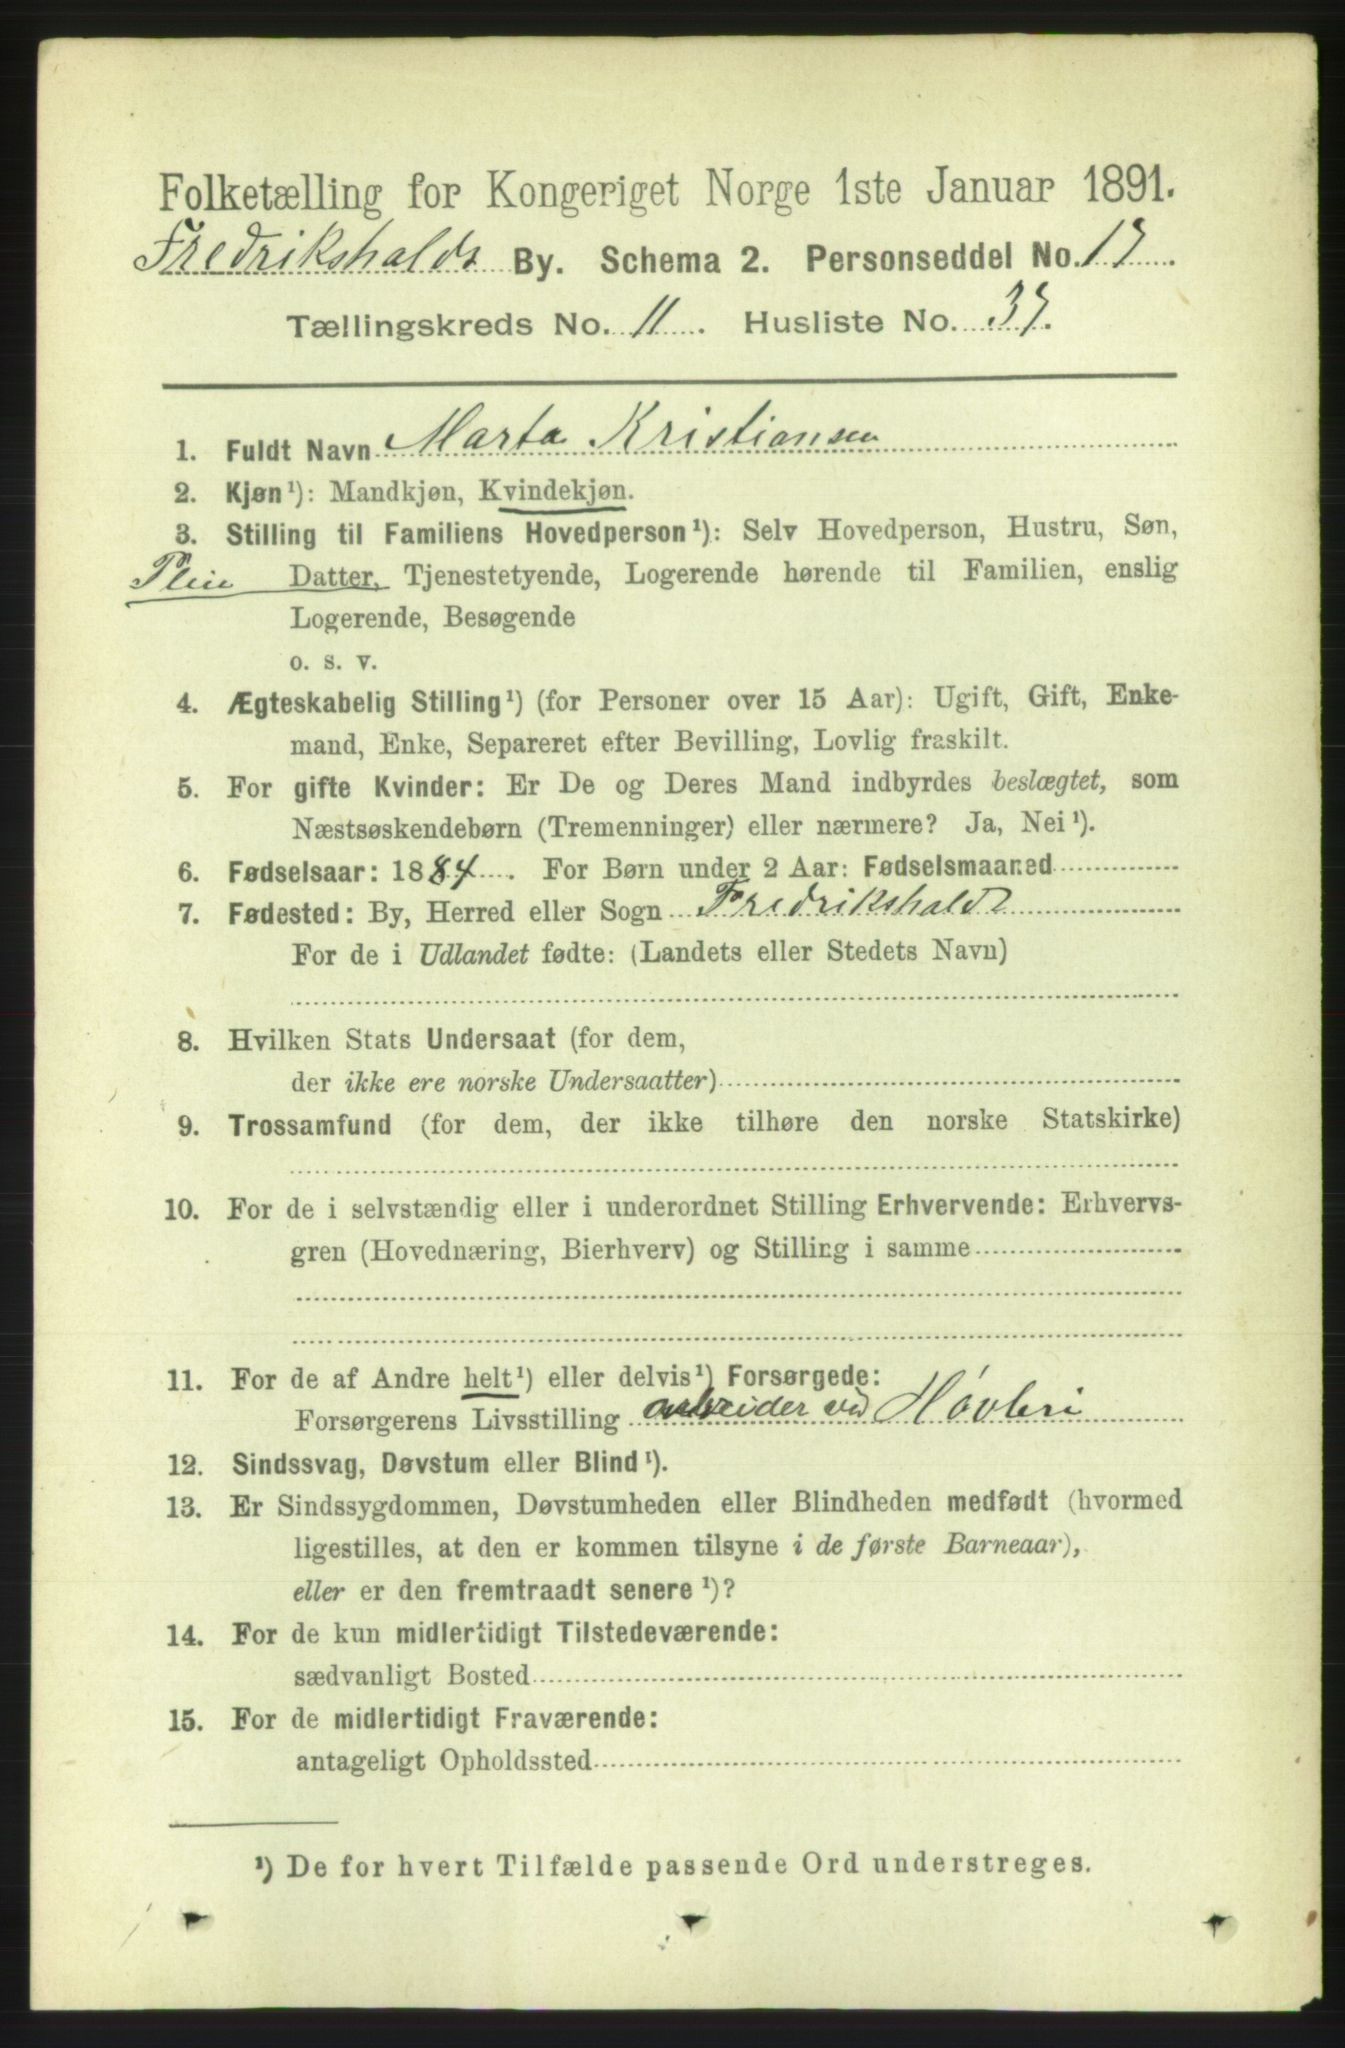 Folketælling for Kongeriget Norge 1ste Januar 1891.
Fredrikshalds By. Schema 2. Personseddel No. 17.
Tællingskreds No. 11. Husliste No. 37.
1. Fuldt Navn Marta Kristiansen
2. Kjøn¹): Mandkjøn, Kvindekjøn.
3. Stilling til Familiens Hovedperson¹): Selv Hovedperson, Hustru, Søn,
Pleie Datter, Tjenestetyende, Logerende hørende til Familien, enslig
Logerende, Besøgende
o. s. v.
4. Ægteskabelig Stilling¹) (for Personer over 15 Aar): Ugift, Gift, Enke-
mand, Enke, Separeret efter Bevilling, Lovlig fraskilt.
5. For gifte Kvinder: Er De og Deres Mand indbyrdes beslægtet, som
Næstsøskendebørn (Tremenninger) eller nærmere? Ja, Nei¹).
6. Fødselsaar: 1884. For Børn under 2 Aar: Fødselsmaaned
7. Fødested: By, Herred eller Sogn Fredrikshald
For de i Udlandet fødte: (Landets eller Stedets Navn)
8. Hvilken Stats Undersaat (for dem,
der ikke ere norske Undersaatter)
9. Trossamfund (for dem, der ikke tilhøre den norske Statskirke)
10. For de i selvstændig eller i underordnet Stilling Erhvervende: Erhvervs-
gren (Hovednæring, Bierhverv) og Stilling i samme
11. For de af Andre helt¹) eller delvis¹) Forsørgede:
Forsørgerens Livsstilling arbeider ved Høvleri
12. Sindssvag, Døvstum eller Blind¹).
13. Er Sindssygdommen, Døvstumheden eller Blindheden medfødt (hvormed
ligestilles, at den er kommen tilsyne i de første Barneaar),
eller er den fremtraadt senere¹)?
14. For de kun midlertidigt Tilstedeværende:
sædvanligt Bosted
15. For de midlertidigt Fraværende:
antageligt Opholdssted
¹) De for hvert Tilfælde passende Ord understreges.